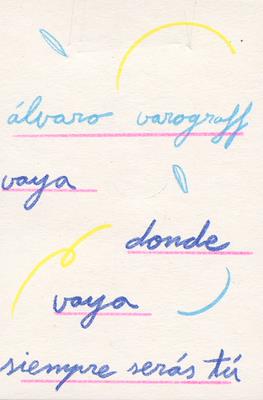 álvaro varograff
vaya
donde
vaya
siempre serás tú